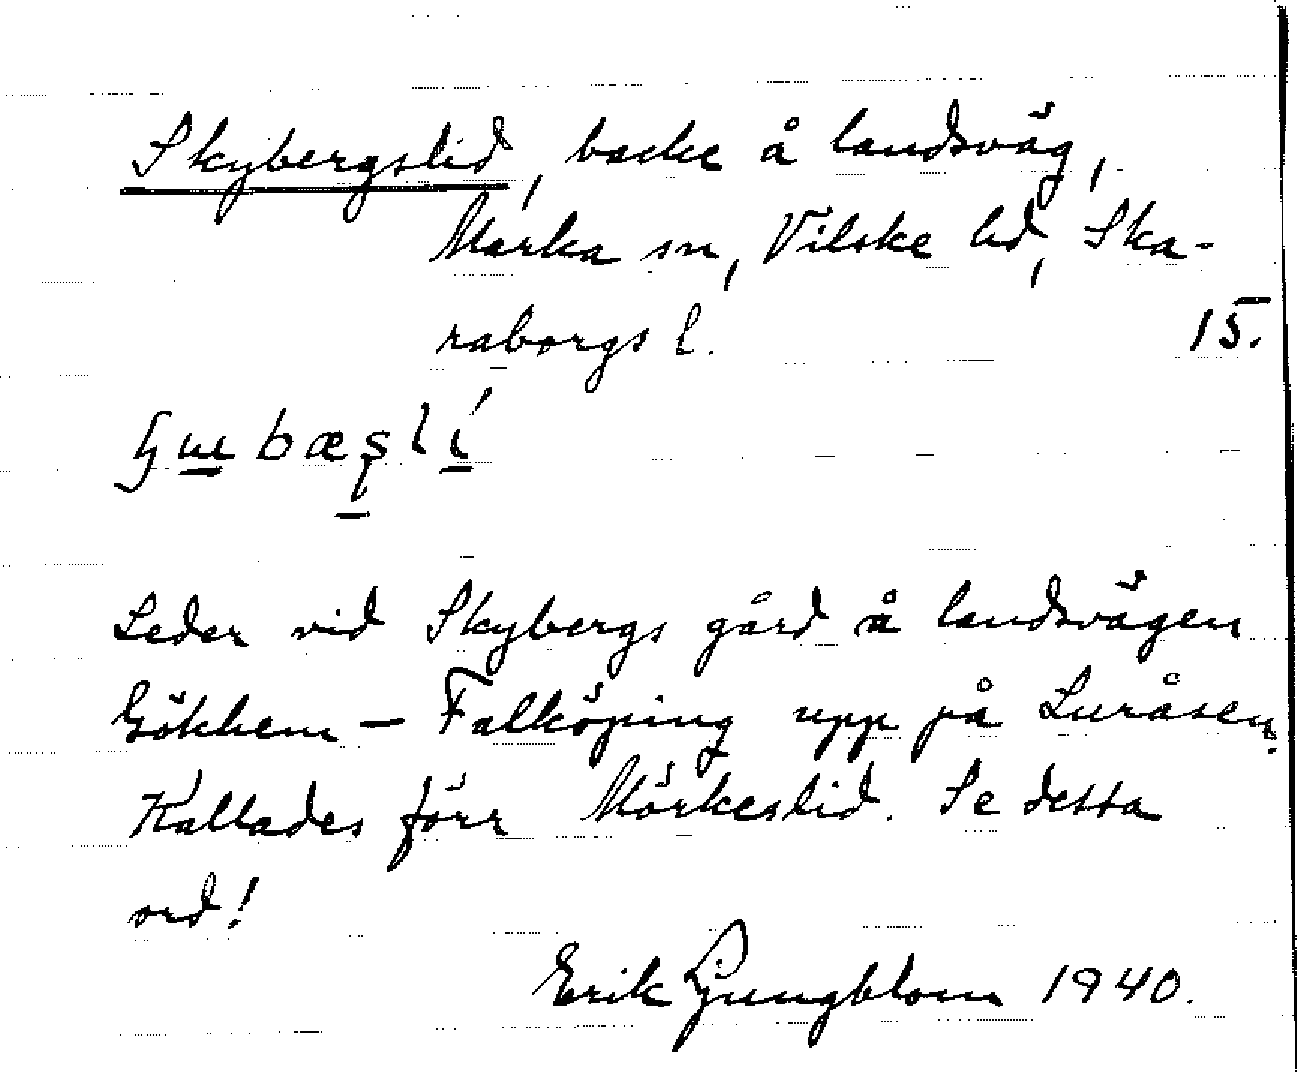 Skybergslid, backe å landsväg,
Marka sn, Vilske hd, Ska-
raborgs l. 15.
Leder vid Skybergs gård å landsvägen
Gökhem – Falköping upp på Luråsen.
Kallades förr Mörkeslid. Se detta
ord!
Erik Ljungblom 1940.